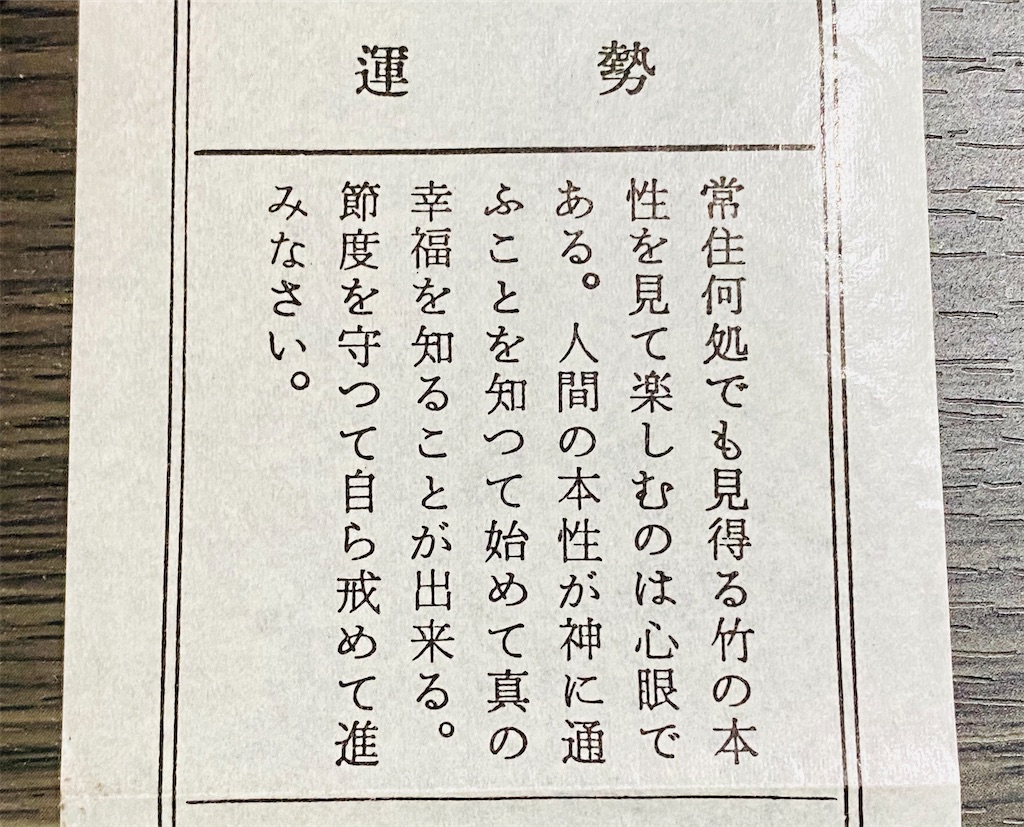 運勢
常住何処でも見得る竹の本
性を見て楽しむのは心眼で
ある。人間の本性が神に通
ふことを知つて始めて真の
幸福を知ることが出来る。
節度を守つて自ら戒めて進
みなさい。